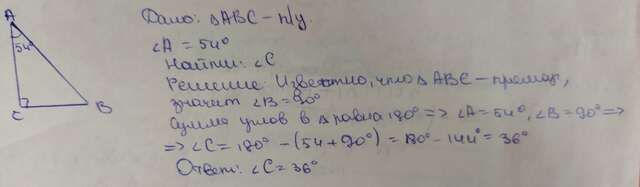 A
54°
C
B
Дано: △ABC – п/у.
∠A = 54°
Найти: ∠C
Решение: Известно, что △ABC – прямоуг,
значит ∠B = 90°
Сумма углов в △ равна 180° => ∠A = 54°, ∠B = 90° =>
=> ∠C = 180° – (54 + 90°) = 180° – 144° = 36°
Ответ: ∠C = 36°